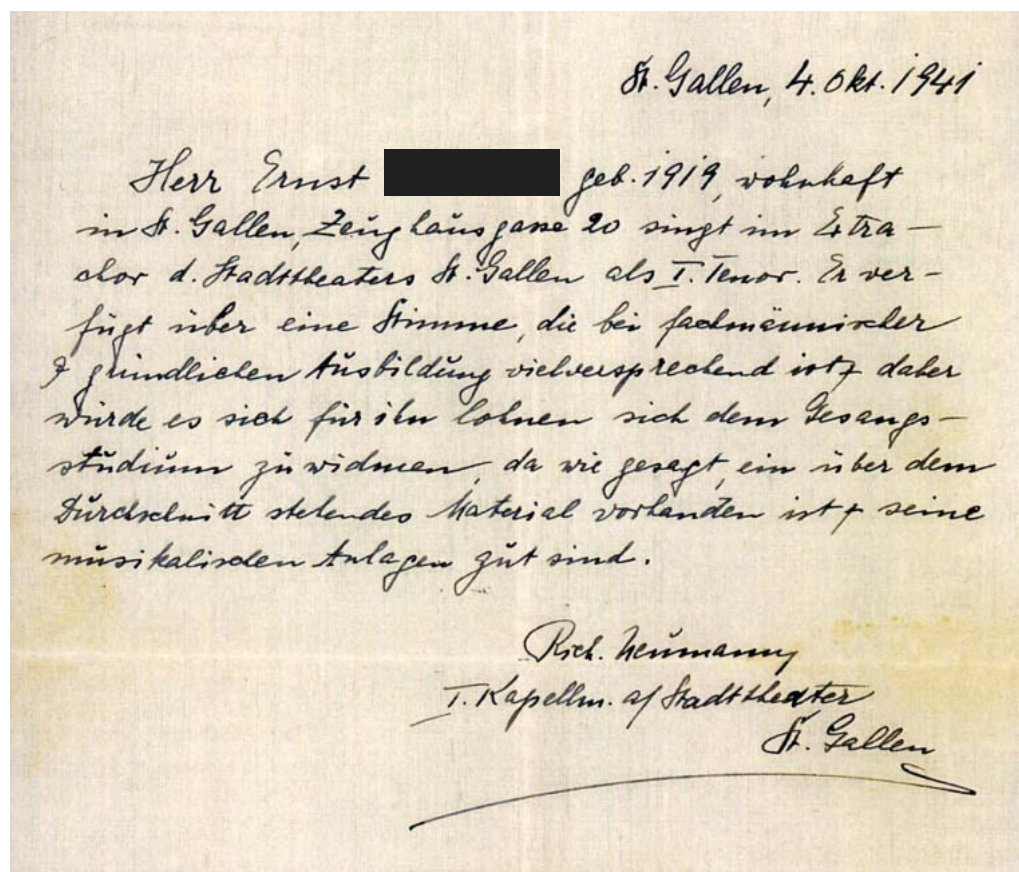 St. Gallen, 4. Okt. 1941
Herr Ernst geb. 1919, wohnhaft
in St. Gallen, Zeughausgasse 20 singt im Extra-
chor d. Stadttheaters St. Gallen als I. Tenor. Er ver-
fügt über eine Stimme, die bei fachmännischer
& gründlichen Ausbildung vielversprechend ist & daher
würde es sich für ihn lohnen sich dem Gesangs-
studium zu widmen, da wie gesagt, ein über dem
Durchschnitt stehendes Material vorhanden ist & seine
musikalischen Anlagen gut sind.
Rich. Neumann
I. Kapellm. a/ Stadttheater
St. Gallen